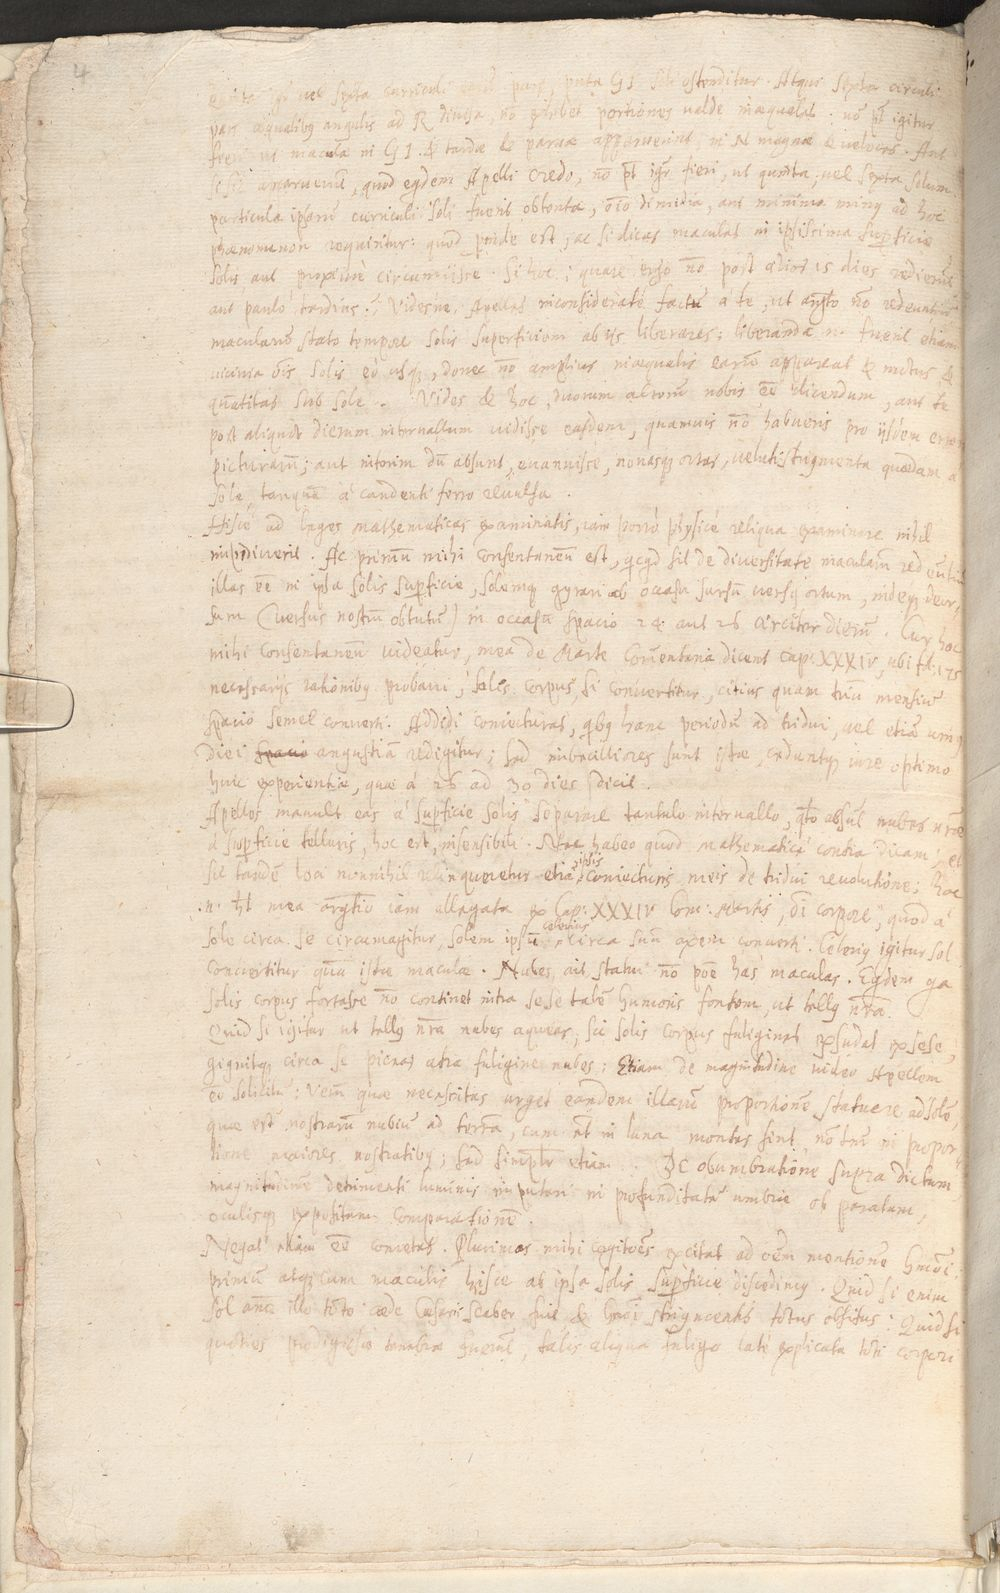 4
quinta ĝr vel sexta curriculi pars, puta GI Soli ostenditur. Atqui sexta circuli
pars æqualibq angulis ad R divisa, nō exhibet portiones valde inæquales. nō pt igitur
fieri ut macula in GI. & tardæ & parvæ apparuerint, in N magnæ & veloces. Aut
si sic apparuerint, quod eqdem Apelli credo, nō pt igr fieri, ut quinta, vel sexta solum
particula ipsarū curriculi Soli fuerit obtenta, oīo dimidia, aut minima minq ad hoc
phænomenon requiritur: quod perinde est, ac si dicas maculas in ipsissima supficie
Solis aut proximè circumiisse. Si hoc; quare ergo nō post alios 15 dies redierūt
aut paulò tardius? Videsne, Apelles inconsideratè factū à te, ut argto nō redeuntiū
macularū stato tempore Solis superficiem ab ijs liberares; liberanda n. fuerit etiam
vicinia oīs Solis eò usq, donec nō amplius inæqualis earū appareat & motus &
quātitas sub Sole. Vides & hoc, duorum alterū nobis eē dicendum, aut te
post aliquot dierum intervallum vidisse easdem, quamvis nō habueris pro ijsdem
picturarū; aut interim dū absunt, evanuisse, novasq ortas, veluti strigmenta quædam à
Sole, tanquā à candenti ferro revulsa.
Hisce ad leges mathematicas examinatis, iam porrò physicè reliqua examinare nihil
impediverit. Ac primū mihi consentaneū est, qcqd sit de diversitate macularū redeuntiū
illas eē in ipsa Solis supficie, Solemq gyrari ab occasu sursū versq ortum, indeq deor,
sum (versus nostrū obtutū) in occasū spacio 24 aut 26 circiter dierū. Cur hoc
mihi consentaneū videatur, mea de Marte Comentaria dicent cap. XXXIV, ubi fol. 175
necessarijs rationibq probavi, Solis corpus, si convertitur, citius quam triū mensiū
spacio semel converti. Addidi coniecturas, qbq hanc periodū ad tridui, vel etiā uniq
diei spacio angustiā redigitur; sed imbecilliores sunt istæ, ceduntq iure optimo
huic experientiæ, quæ à 26 ad 30 dies dicit.
Apelles mavult eas à supficie Solis separare tantulo intervallo, qto absūt nubes nræ
à supficie telluris, hoc est, insensibili. Non habeo quod mathematicè contra dicam; et
sic tandē loci nonnihil relinqueretur etiā ipsis coniecturis meis de tridui revolutione; hoc
n. ht mea argtio iam allegata ex Cap. XXXIV Com: Martis, oī corpore, quod à
Sole circa se circumagitur, Solem ipsū celeriùs circa suū axem converti. Celeriq igitur Sol
convertitur quā istæ maculæ. Nubes, ait, statui nō poē has maculas. Eqdem qa
Solis corpus fortasse nō continet intra sese talē humoris fontem, ut tellq nra.
Quid si igitur ut tellq nra nubes aqueas, sic Solis corpus fuligines exsudat ex sese,
gignitq circa se piceas atra fuligine nubes; Etiam de magnitudine video Apellem
eē solicitū: Verū quæ necessitas urget eandem illarū proportionē statuere ad Solē,
quæ est nostrarū nubiū ad terrā, cum at in luna montes sint nō tm in propor,
tione maiores nostratibq; sed simplr etiam. De obumbratione supra dictum
magnitudinē detrimenti luminis imputari in profunditatē umbræ ob paratam,
oculisq expositam comparationē.
Negat etiam eē cometas. Plurimas mihi cogitoēs excitat ad oēm mentionē hmoi,
primū atq cum maculis hisce ab ipsa Solis supficie discedimq. Quid si enim
Sol anō illo toto cæde Cæsaris scaber fuit & hmoi strigmentis totus obsitus: Quid si
quoties prodigiosæ tenebræ fuerūt, talis aliqua fuligo latè explicata toti corpori